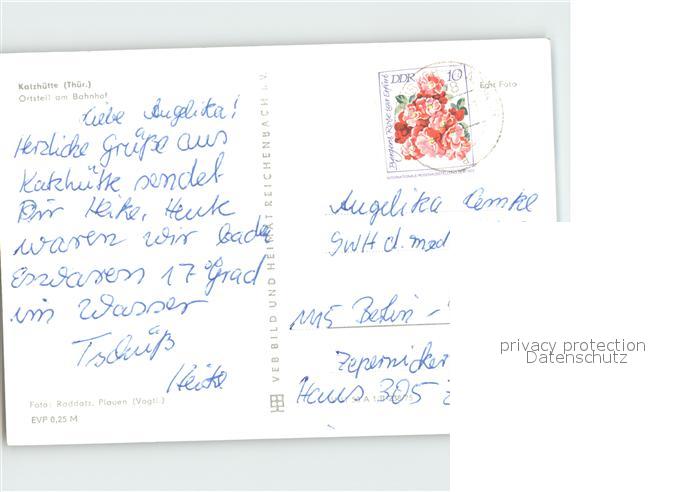 Katzhütte (Thür.)
Ortsteil am Bahnhof
Liebe Angelika!
Herzliche Grüße aus
Katzhütte sendet
Dir Heike. Heute
waren wir baden
Es waren 17 Grad
im Wasser
Tschüß
Heike
Foto: Raddatz, Plauen (Vogtl.)
EVP 0,25 M
VEB BILD UND HEIMAT REICHENBACH i. V.
DDR 10
Echt Foto
Angelika Lemke
SWH d. med
1115 Berlin -
Zepernicker
Haus 305
privacy protection
Datenschutz